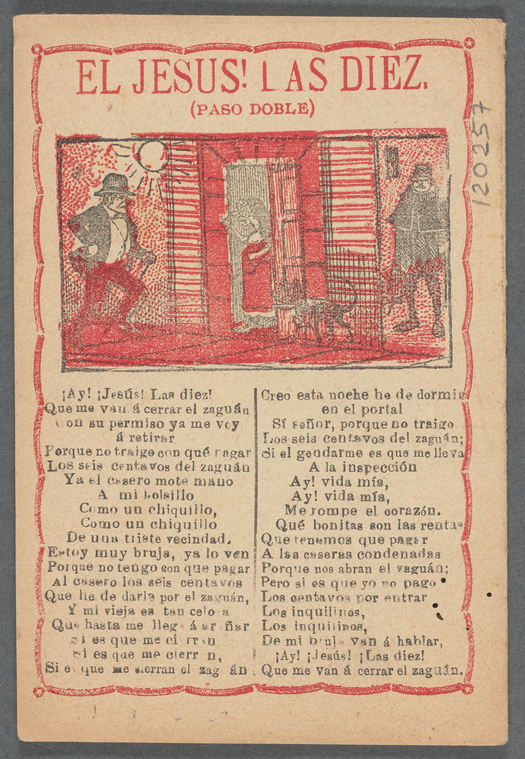 EL JESUS! LAS DIEZ.
(PASO DOBLE)
120257
¡Ay! ¡Jesús! Las diez!
Que me van á cerrar el zaguán
Con su permiso ya me voy
á retirar
Porque no traigo con qué pagar
Los seis centavos del zaguán
Ya el casero mote mano
A mi bolsillo
Como un chiquillo,
Como un chiquillo
De una triste vecindad.
Estoy muy bruja, ya lo ven
Porque no tengo con que pagar
Al casero los seis centavos
Que he de darle por el zaguán,
Y mi vieja es tan celosa
Que hasta me llega á arañar
Si es que me cierran
Si es que me cierran,
Si es que me cierran el zaguán
Creo esta noche he de dormir
en el portal
Sí señor, porque no traigo
Los seis centavos del zaguán;
Si el gendarme es que me lleva
A la inspección
Ay! vida mía,
Ay! vida mía,
Me rompe el corazón.
Qué bonitas son las rentas
Que tenemos que pagar
A las caseras condenadas
Porque nos abran el zaguán;
Pero si es que yo no pago
Los centavos por entrar
Los inquilinos,
Los inquilinos,
De mi bruja van á hablar,
¡Ay! ¡Jesús! ¡Las diez!
Que me van á cerrar el zaguán.